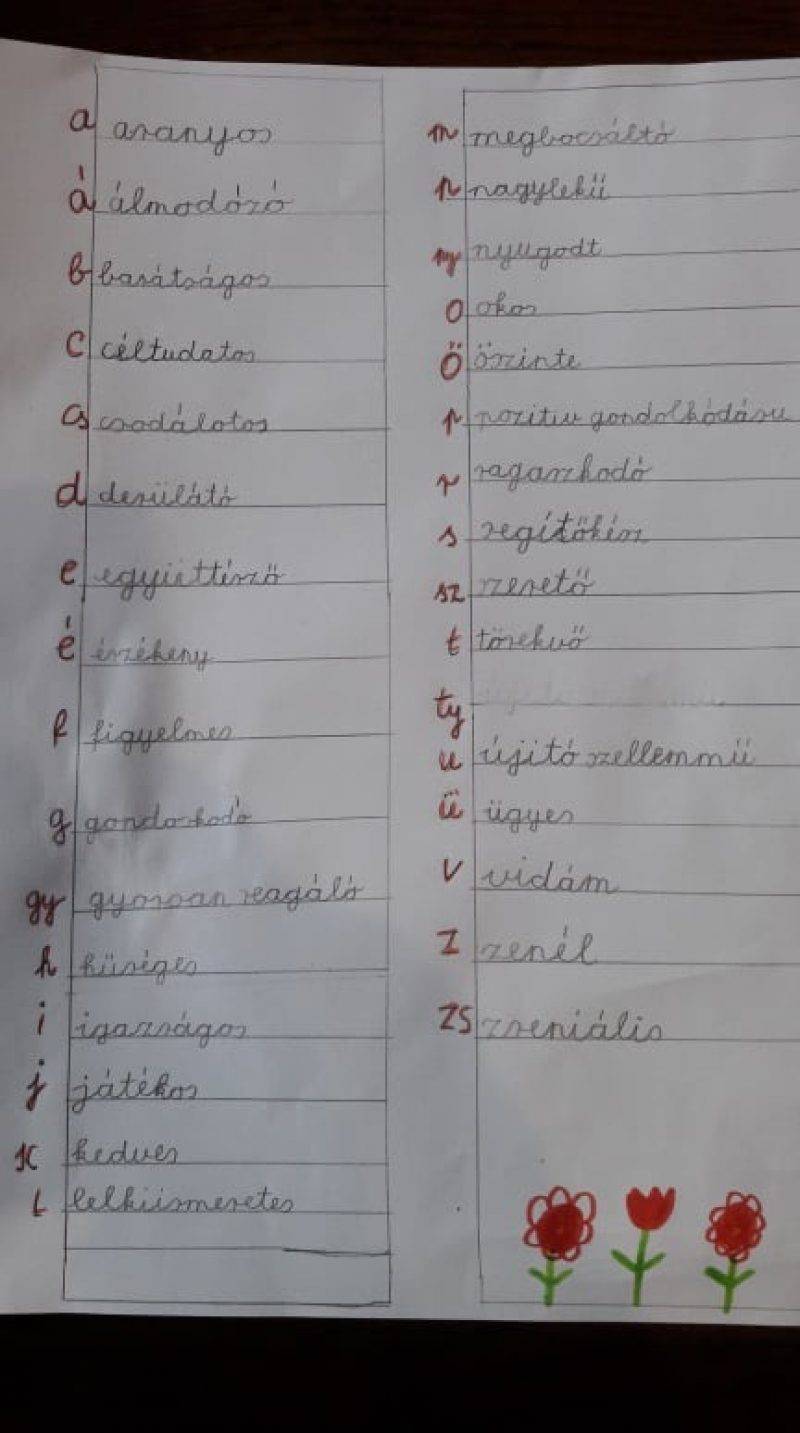 a aranyos
á álmodózó
b barátságos
c céltudatos
cs csodálatos
d derülátó
e együttérző
é érzékeny
f figyelmes
g gondoskodó
gy gyorsan reagáló
h hűséges
i igazságos
j játékos
k kedves
l lelkiismeretes
m megbocsáltó
n nagylekű
ny nyugodt
o okos
ő őszinte
p pozitiv gondolkódásu
r ragaszkodó
s segítőkész
sz szerető
t törekvő
ty
u újitó szellemmű
ü ügyes
v vidám
z zenél
zs zseniális